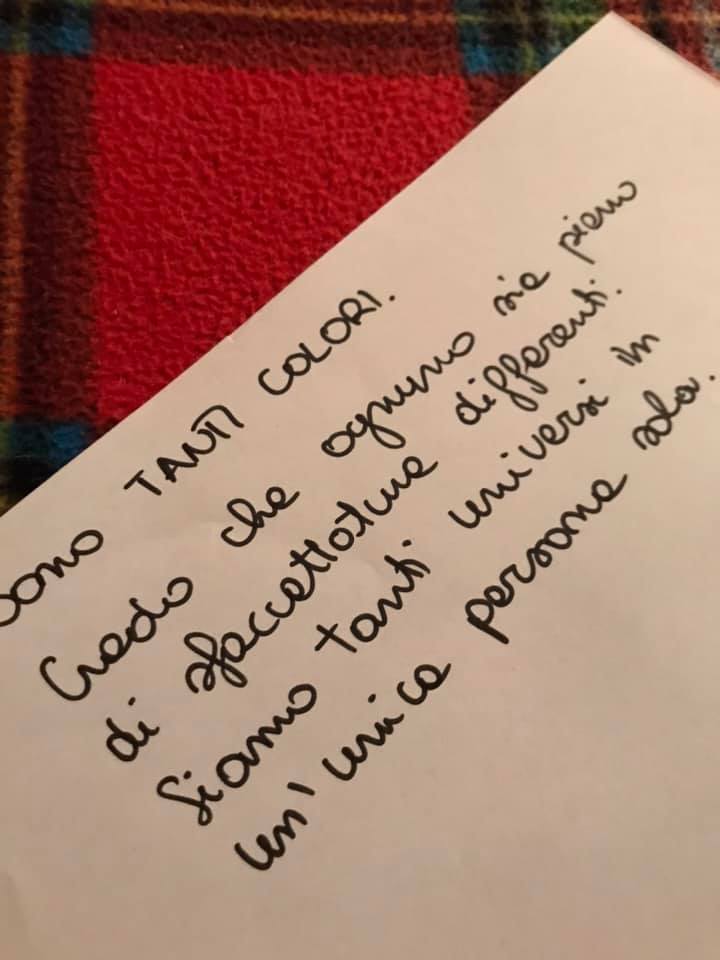 Sono TANTI COLORI.
Credo che ognuno sia pieno
di sfaccettature differenti.
Siamo tanti universi in
un'unica persona sola.